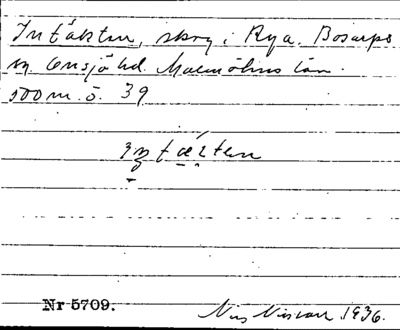 Intäkten, skog i Rya. Bosarps
sn Onsjö hd. Malmöhus län.
500 m. ö. 39
Nr 5709.
Nils Nilsson 1936.